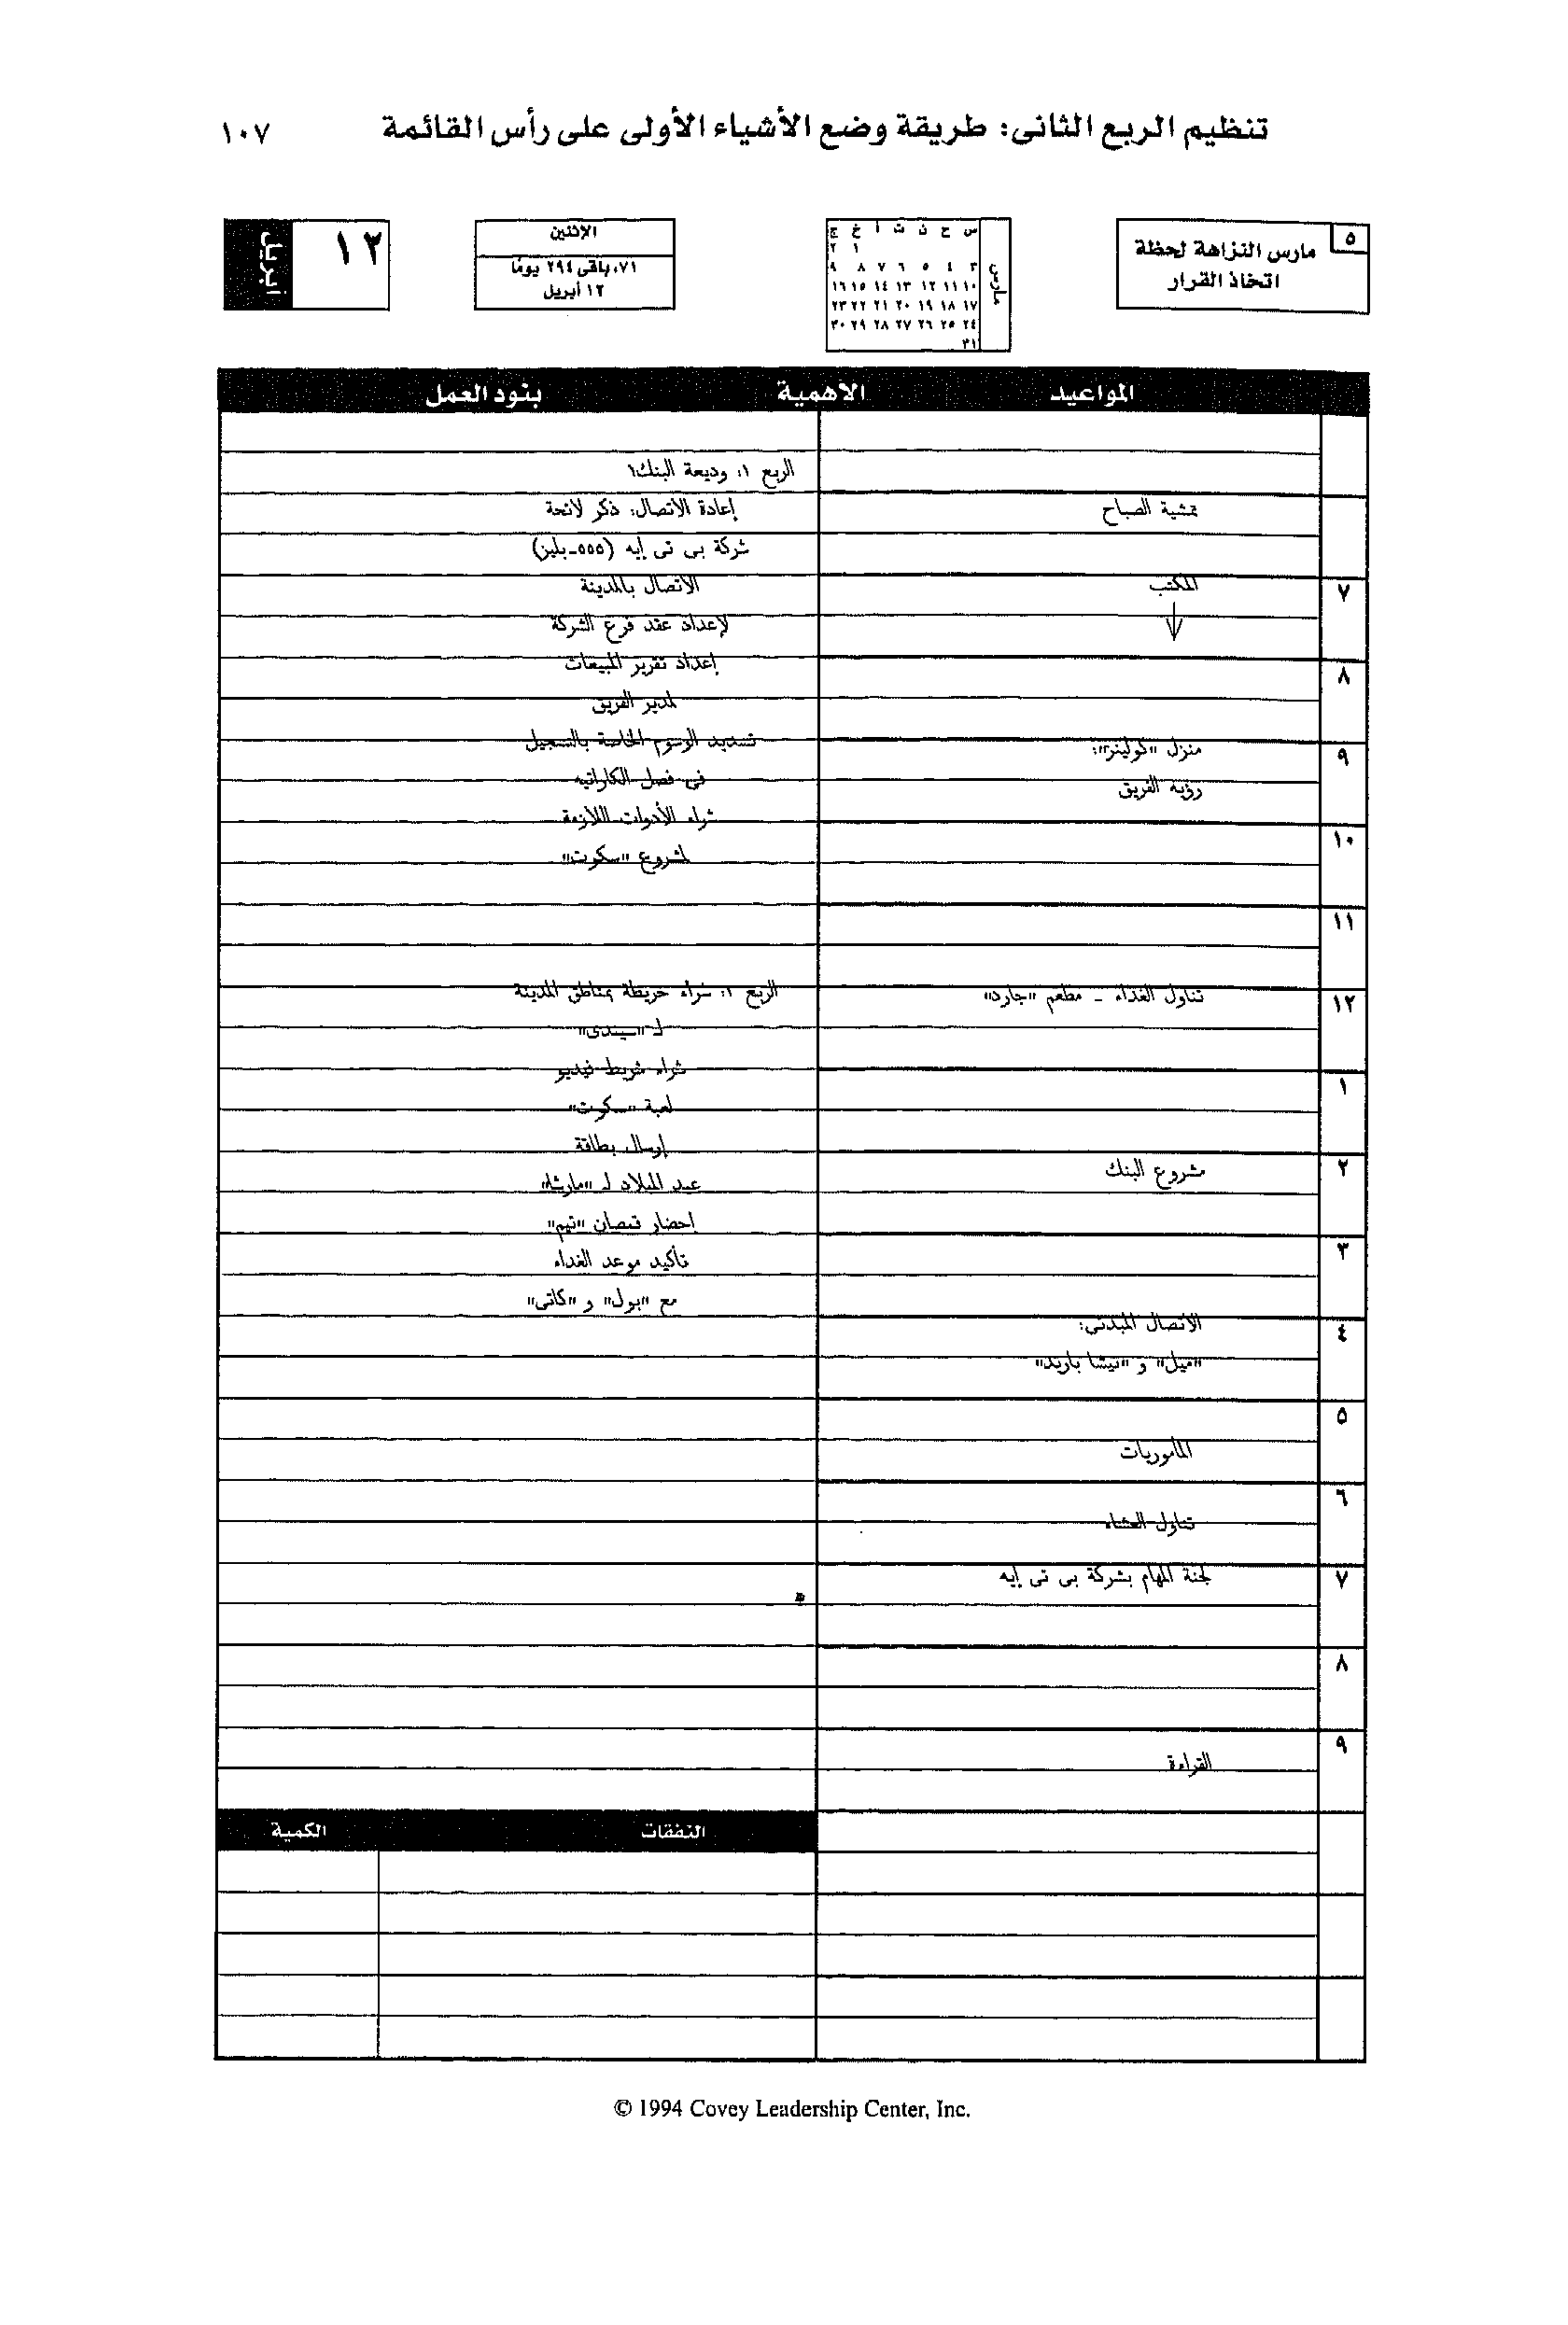 تنظيم الربع الثانى: طريقة وضع الأشياء الأولى على رأس القائمة ١٠٧
٥
مارس النزاهة لحظة
اتخاذ القرار
مارس
س ح ن ث أ خ ج
١ ٢
٣ ٤ ٥ ٦ ٧ ٨ ٩
١٠ ١١ ١٢ ١٣ ١٤ ١٥ ١٦
١٧ ١٨ ١٩ ٢٠ ٢١ ٢٢ ٢٣
٢٤ ٢٥ ٢٦ ٢٧ ٢٨ ٢٩ ٣٠
٣١
الإثنين
٧١، باقى ٢٩٤ يومًا
١٢ أبريل
١٢
أبريل
المواعيد الأهمية بنود العمل
الربع ١: وديعة البنك١
تمشية الصباح إعادة الاتصال: ذكر لائحة
شركة بى تى إيه (٥٥٥-بليز)
٧ المكتب الاتصال بالمدينة
لإعداد عقد فرع الشركة
٨ إعداد تقرير المبيعات
لمدير الفريق
٩ منزل "كولينز": تسديد الرسوم الخاصة بالتسجيل
رؤية الفريق فى فصل الكاراتيه
شراء الأدوات اللازمة
١٠ لمشروع "سكوت"
١١
١٢ تناول الغداء - مطعم "جارد" الربع ١: شراء خريطة بمناطق المدينة
لـ "سيندى"
شراء شريط فيديو
١ لعبة "سكوت"
إرسال بطاقة
٢ مشروع البنك عيد الميلاد لـ "مارشا"
إحضار قمصان "تيم"
٣ تأكيد موعد الغداء
مع "بول" و "كاتى"
٤ الاتصال المبدئى:
"ميل" و "نيشا باريد"
٥
المأموريات
٦
تناول العشاء
٧ لجنة المهام بشركة بى تى إيه
٨
٩
القراءة
النفقات الكمية
© 1994 Covey Leadership Center, Inc.